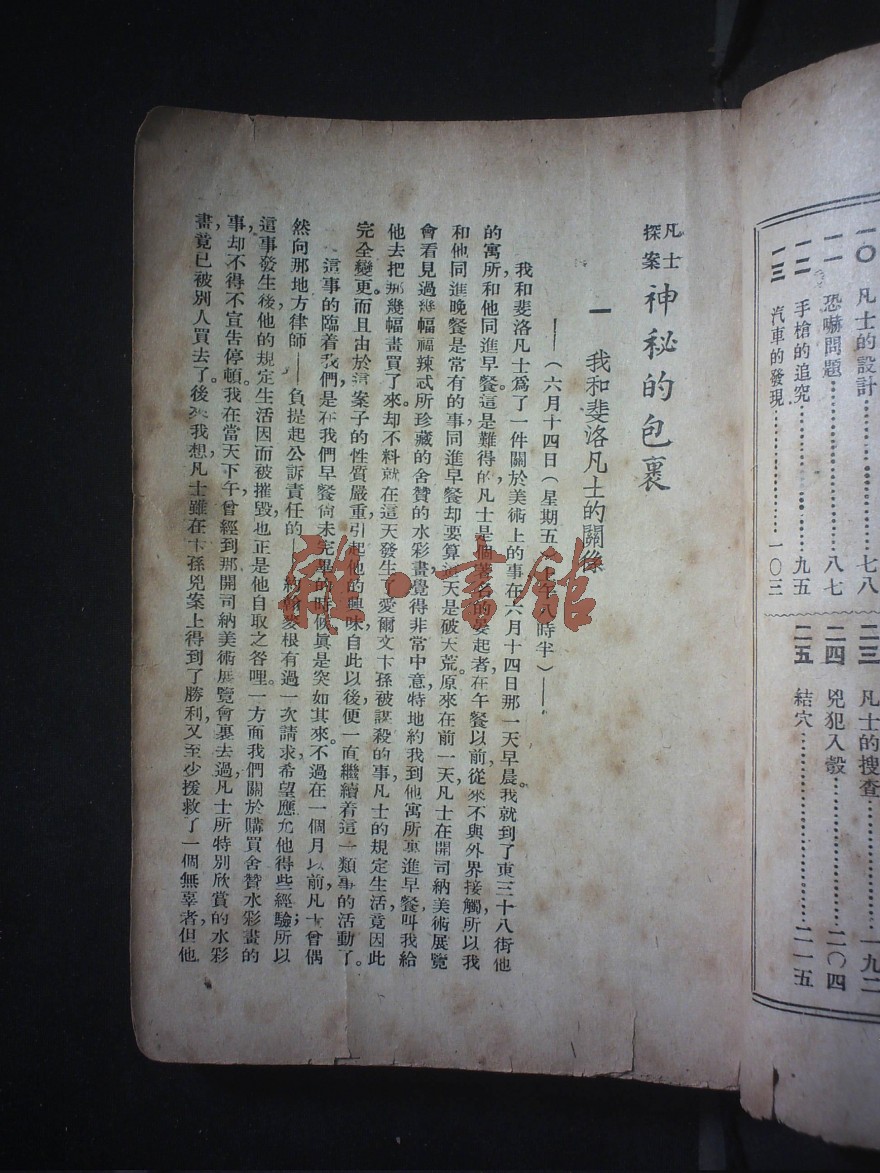 一〇 凡士的設計……………七八
一一 恐嚇問題……………八七
一二 手槍的追究……………九五
一三 汽車的發現……………一〇三
二三 凡士的搜查……………一九二
二四 兇犯入彀……………二〇四
二五 結穴……………二一五
凡士探案 神秘的包裹
一 我和斐洛凡士的關係
——(六月十四日(星期五)上午八時半)——
我和斐洛凡士爲了一件關於美術上的事在六月十四日那一天早晨,我就到了東三十八街他
的寓所,和他同進早餐。這是難得的,凡士是個著名的晏起者,在午餐以前,從來不與外界接觸,所以我
和他同進晚餐是常有的事,同進早餐,却要算這天是破天荒。原來在前一天,凡士在開司納美術展覽
會看見過幾幅福辣忒所珍藏的舍贊的水彩畫,覺得非常中意,特地約我到他寓所裏進早餐,叫我給
他去把那幾幅畫買了來。却不料就在這天發生了愛爾文卞孫被謀殺的事,凡士的規定生活竟因此
完全變更。而且由於這案子的性質嚴重,引起他的興味,自此以後,便一直繼續着這一類事的活動了。
這事的臨着我們,是在我們早餐尙未完畢的時候,眞是突如其來。不過在一個月以前,凡士曾偶
然向那地方律師——負提起公訴責任的——約翰麥根有過一次請求,希望應允他得些經驗;所以
這事發生後,他的規定生活因而被摧毀,也正是他自取之咎哩。一方面我們關於購買舍贊水彩畫的
事,却不得不宣告停頓。我在當天下午曾經到那開司納美術展覽會裏去過,凡士所特別欣賞的水彩
畫,竟已被別人買去了。後來我想,凡士雖在卞孫兇案上得到了勝利,又至少援救了一個無辜者,但他
雜·書館